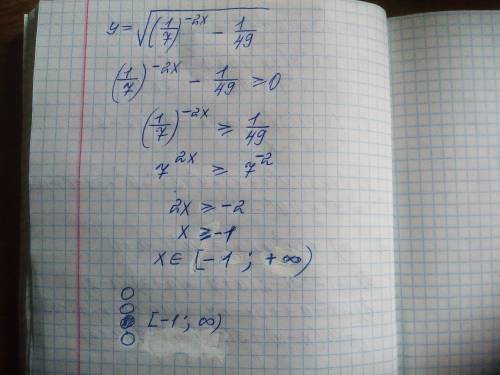 y = √((1/7)^(-2x) - 1/49)
(1/7)^(-2x) - 1/49 ≥ 0
(1/7)^(-2x) ≥ 1/49
7^(2x) ≥ 7^(-2)
2x ≥ -2
x ≥ -1
x ∈ [-1; +∞)
[-1; ∞)